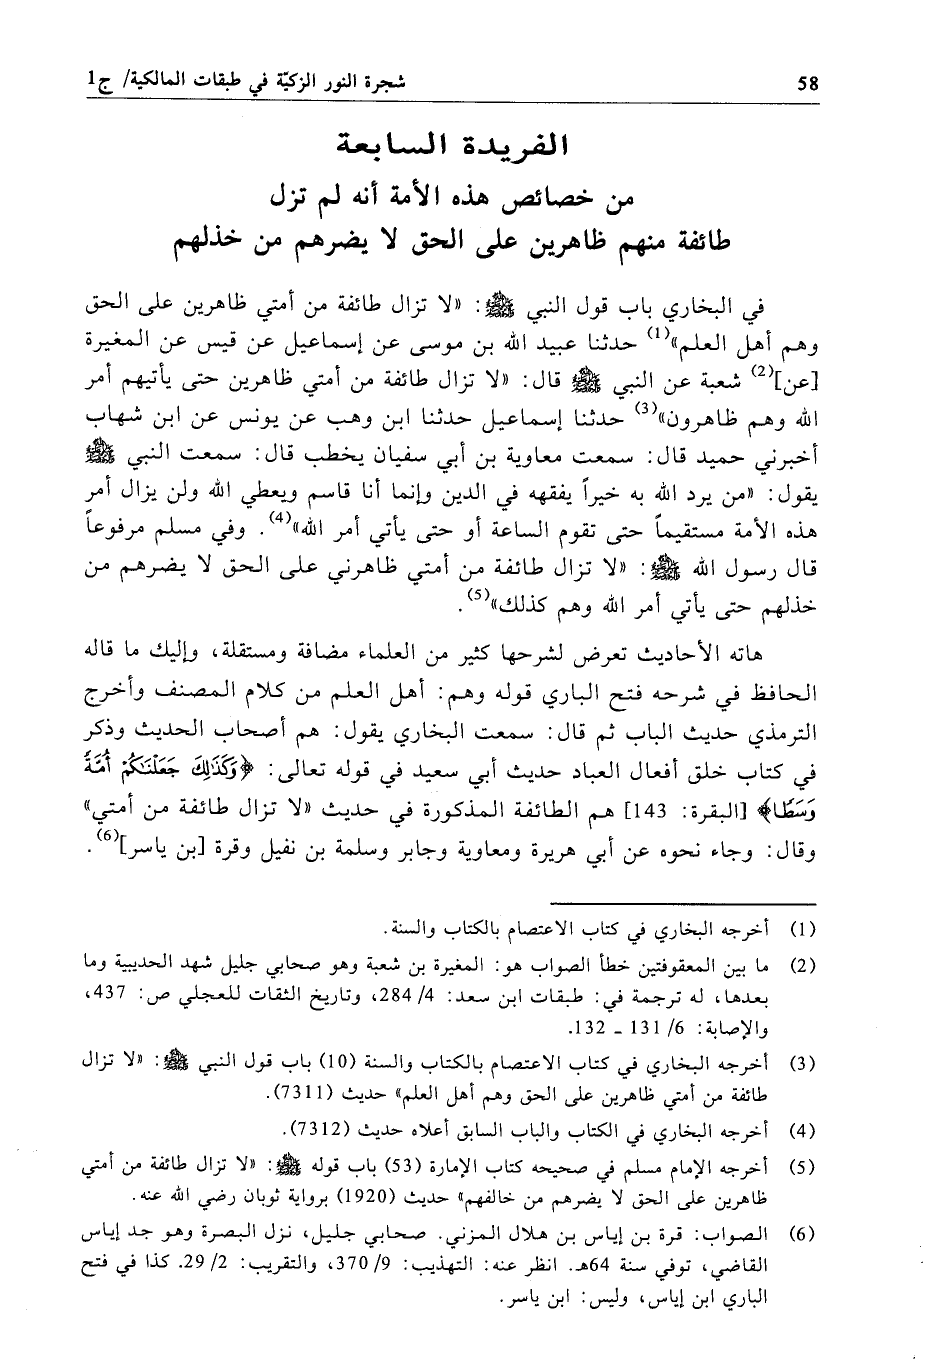 58
شجرة النور الزكيّة في طبقات المالكية/ ج1
الفريدة السابعة
من خصائص هذه الأمة أنه لم تزل
طائفة منهم ظاهرين على الحق لا يضرهم من خذلهم
في البخاري باب قول النبي ﷺ: «لا تزال طائفة من أمتي ظاهرين على الحق
وهم أهل العلم»(1) حدثنا عبيد الله بن موسى عن إسماعيل عن قيس عن المغيرة
[عن](2) شعبة عن النبي ﷺ قال: «لا تزال طائفة من أمتي ظاهرين حتى يأتيهم أمر
الله وهم ظاهرون»(3) حدثنا إسماعيل حدثنا ابن وهب عن يونس عن ابن شهاب
أخبرني حميد قال: سمعت معاوية بن أبي سفيان يخطب قال: سمعت النبي ﷺ
يقول: «من يرد الله به خيراً يفقهه في الدين وإنما أنا قاسم ويعطي الله ولن يزال أمر
هذه الأمة مستقيماً حتى تقوم الساعة أو حتى يأتي أمر الله»(4). وفي مسلم مرفوعاً
قال رسول الله ﷺ: «لا تزال طائفة من أمتي ظاهرني على الحق لا يضرهم من
خذلهم حتى يأتي أمر الله وهم كذلك»(5).
هاته الأحاديث تعرض لشرحها كثير من العلماء مضافة ومستقلة، وإليك ما قاله
الحافظ في شرحه فتح الباري قوله وهم: أهل العلم من كلام المصنف وأخرج
الترمذي حديث الباب ثم قال: سمعت البخاري يقول: هم أصحاب الحديث وذكر
في كتاب خلق أفعال العباد حديث أبي سعيد في قوله تعالى: ﴿وَكَذَٰلِكَ جَعَلْنَٰكُمْ أُمَّةً
وَسَطًا﴾ [البقرة: 143] هم الطائفة المذكورة في حديث «لا تزال طائفة من أمتي»
وقال: وجاء نحوه عن أبي هريرة ومعاوية وجابر وسلمة بن نفيل وقرة [بن ياسر](6).
(1) أخرجه البخاري في كتاب الاعتصام بالكتاب والسنة.
(2) ما بين المعقوفتين خطأ الصواب هو: المغيرة بن شعبة وهو صحابي جليل شهد الحديبية وما
بعدها، له ترجمة في: طبقات ابن سعد: 4/ 284، وتاريخ الثقات للعجلي ص: 437،
والإصابة: 6/ 131 ـ 132.
(3) أخرجه البخاري في كتاب الاعتصام بالكتاب والسنة (10) باب قول النبي ﷺ: «لا تزال
طائفة من أمتي ظاهرين على الحق وهم أهل العلم» حديث (7311).
(4) أخرجه البخاري في الكتاب والباب السابق أعلاه حديث (7312).
(5) أخرجه الإمام مسلم في صحيحه كتاب الإمارة (53) باب قوله ﷺ: «لا تزال طائفة من أمتي
ظاهرين على الحق لا يضرهم من خالفهم» حديث (1920) برواية ثوبان رضي الله عنه.
(6) الصواب: قرة بن إياس بن هلال المزني. صحابي جليل، نزل البصرة وهو جد إياس
القاضي، توفي سنة 64هـ. انظر عنه: التهذيب: 9/ 370، والتقريب: 2/ 29. كذا في فتح
الباري ابن إياس، وليس: ابن ياسر.